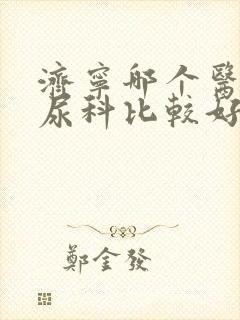 濟寧哪个醫
尿科比較好
鄭金發